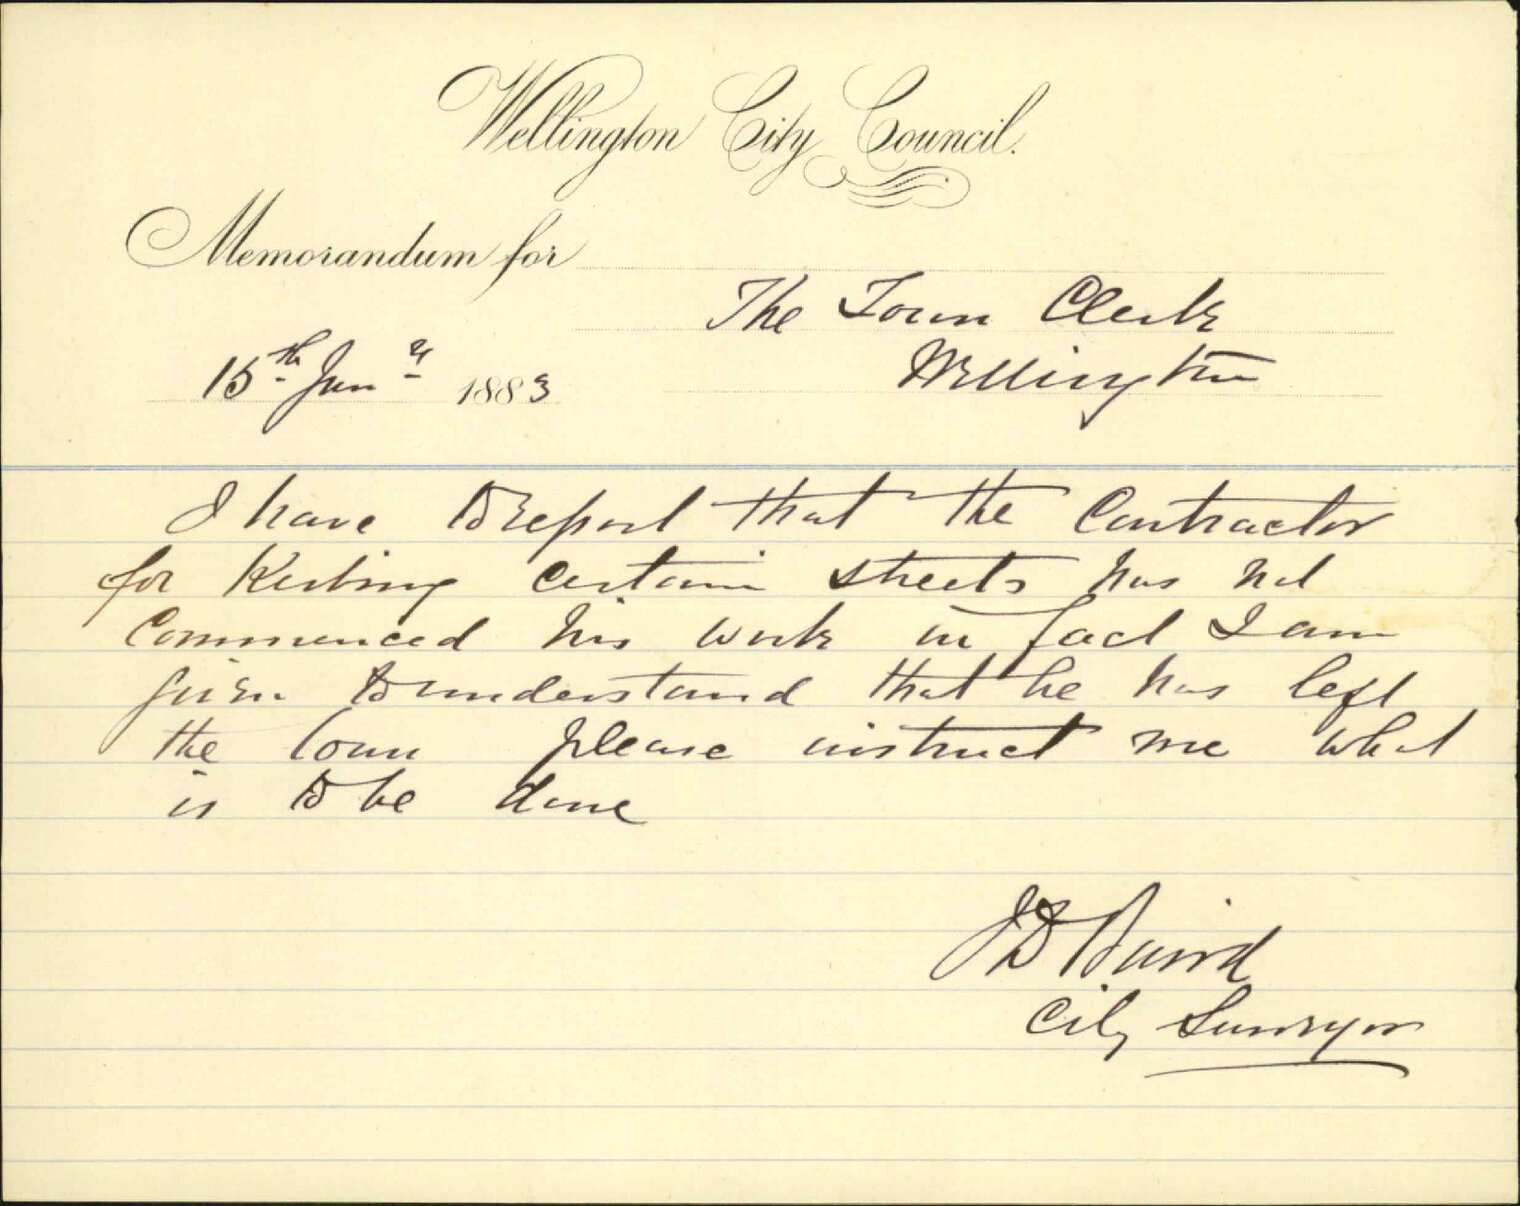 Wellington City Council.
Memorandum for
The Town Clerk
Wellington
15th Jany 1883
I have to report that the Contractor
for Kerbing certain streets has not
Commenced his work in fact I am
given to understand that he has left
the town please instruct me what
is to be done
J D Baird
City Surveyor